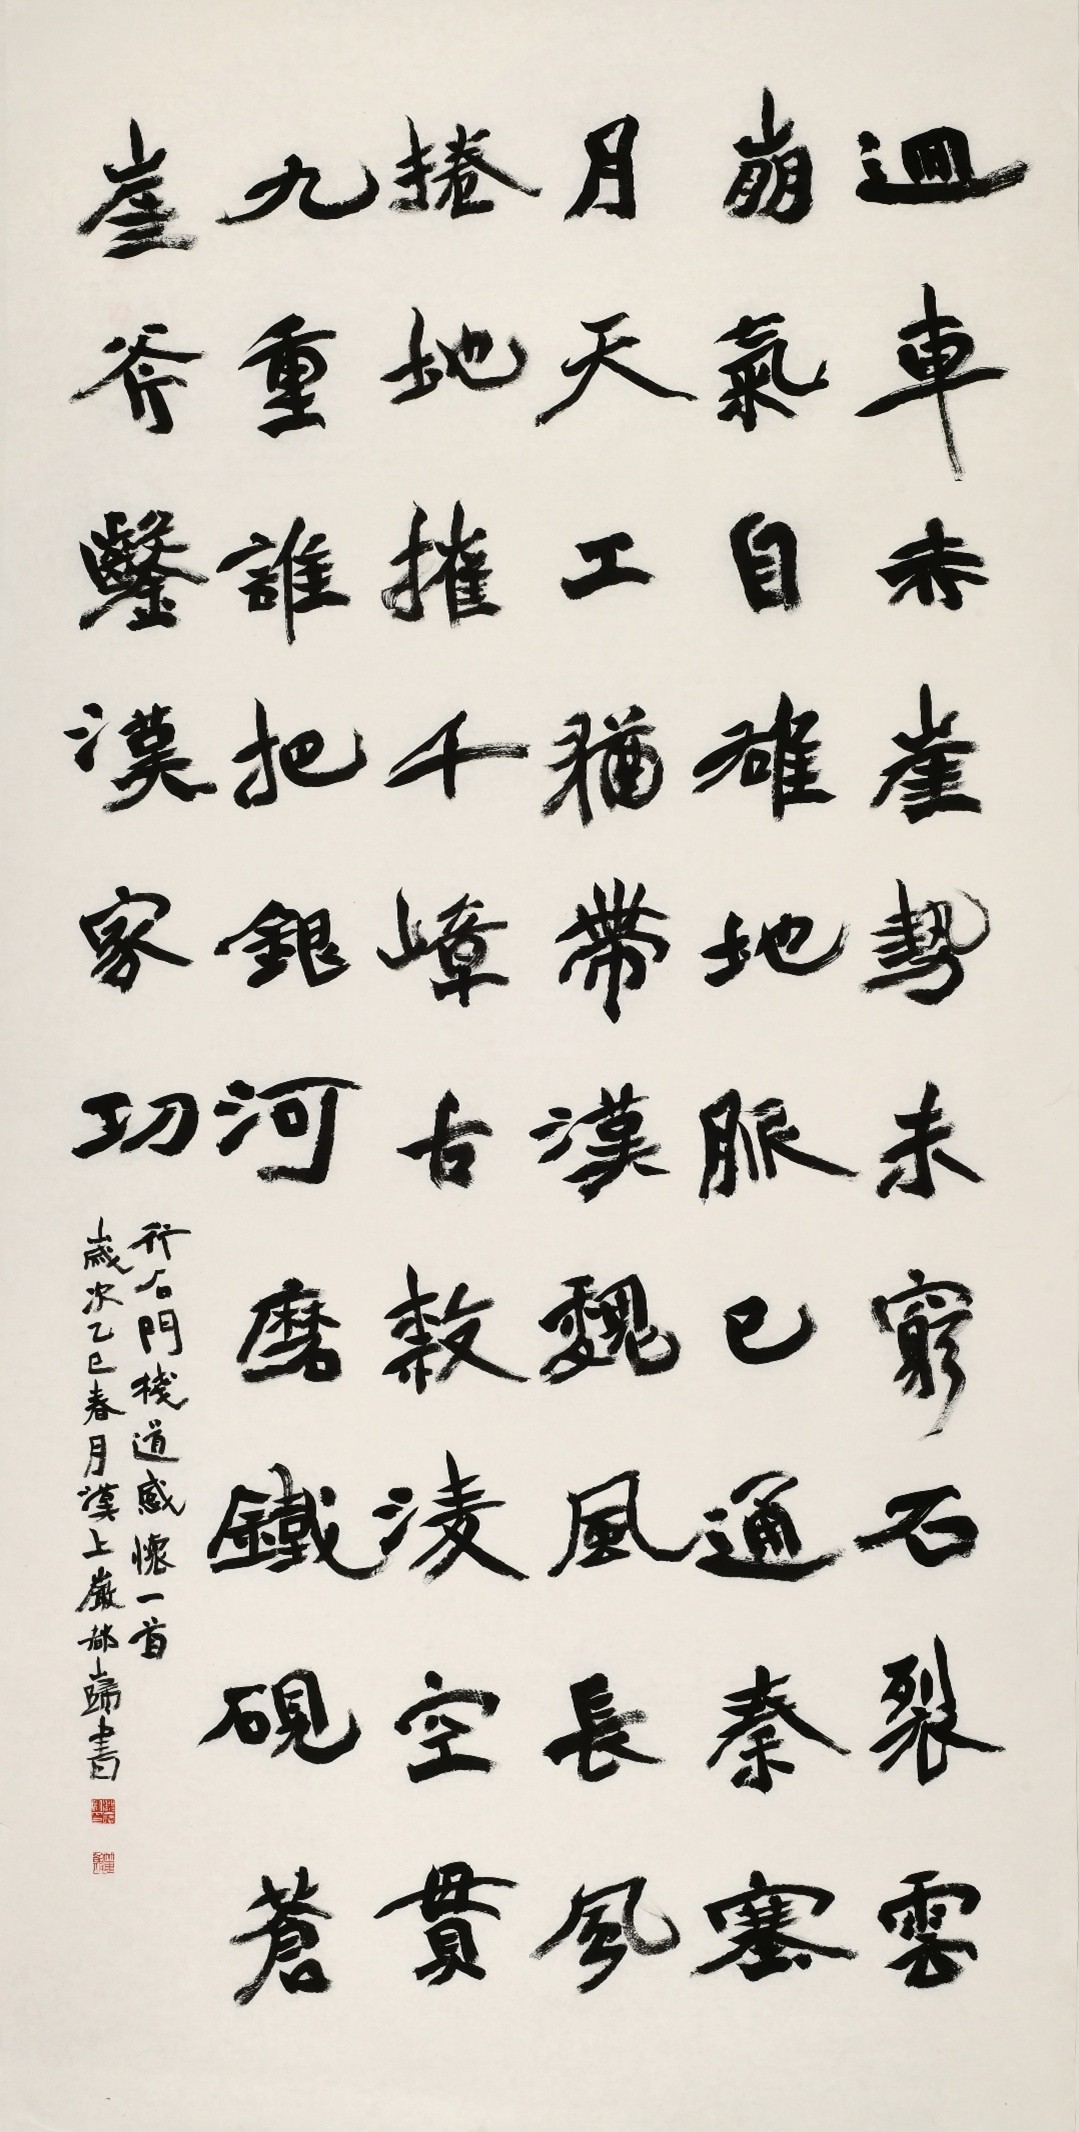 迴車赤崖勢未窮石裂雲
崩氣自雄地脈已通秦塞
月天工猶帶漢魏風長風
捲地摧千嶂古敎淩空貫
九重誰把銀河磨鐵硯蒼
崖斧鑿漢家功
行石門棧道感懷一首
歲次乙巳春月漢上嚴郝歸書